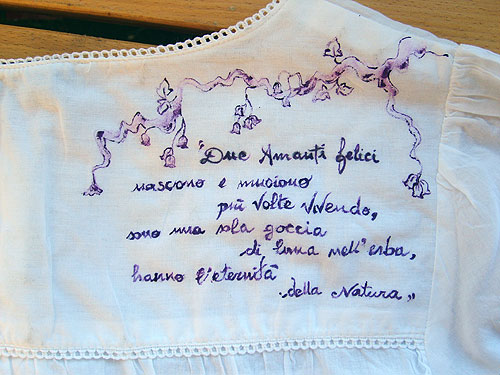 "Due Amanti felici
nascono e muoiono
più volte vivendo,
sono una sola goccia
di luna nell'erba,
hanno l'eternità
della Natura"